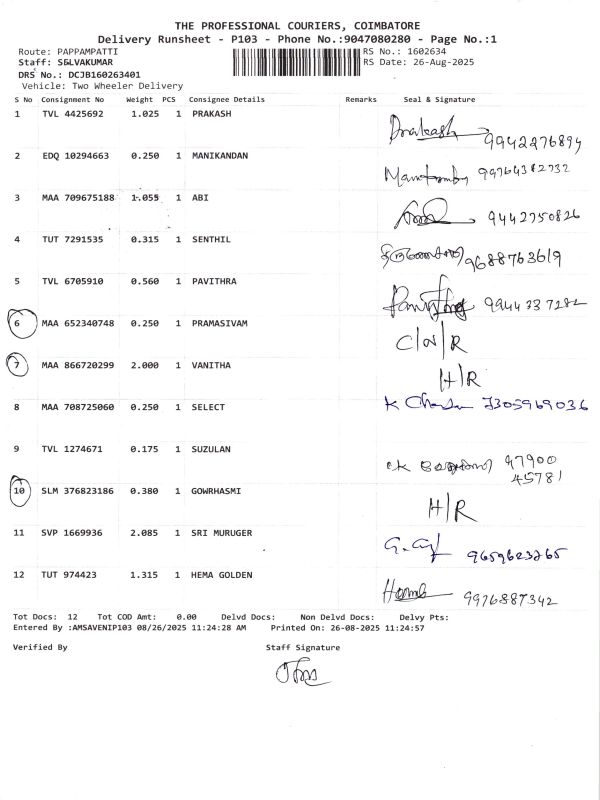 THE PROFESSIONAL COURIERS, COIMBATORE
Delivery Runsheet - P103 - Phone No.:9047080280 - Page No.:1
Route: PAPPAMPATTI RS No.: 1602634
Staff: SELVAKUMAR RS Date: 26-Aug-2025
DRS No.: DCJB160263401
Vehicle: Two Wheeler Delivery
S No Consignment No Weight PCS Consignee Details Remarks Seal & Signature
1 TVL 4425692 1.025 1 PRAKASH Prakash 9942276894
2 EDQ 10294663 0.250 1 MANIKANDAN
3 MAA 709675188 1.055 1 ABI 9442750826
4 TUT 7291535 0.315 1 SENTHIL 9688763619
5 TVL 6705910 0.560 1 PAVITHRA 9944337282
6 MAA 652340748 0.250 1 PRAMASIVAM C/N/R
7 MAA 866720299 2.000 1 VANITHA H/R
8 MAA 708725060 0.250 1 SELECT K 7305969036
9 TVL 1274671 0.175 1 SUZULAN 97900
45781
10 SLM 376823186 0.380 1 GOWRHASMI H/R
11 SVP 1669936 2.085 1 SRI MURUGER 9659623765
12 TUT 974423 1.315 1 HEMA GOLDEN 9976887342
Tot Docs: 12 Tot COD Amt: 0.00 Delvd Docs: Non Delvd Docs: Delvy Pts:
Entered By :AMSAVENIP103 08/26/2025 11:24:28 AM Printed On: 26-08-2025 11:24:57
Verified By Staff Signature